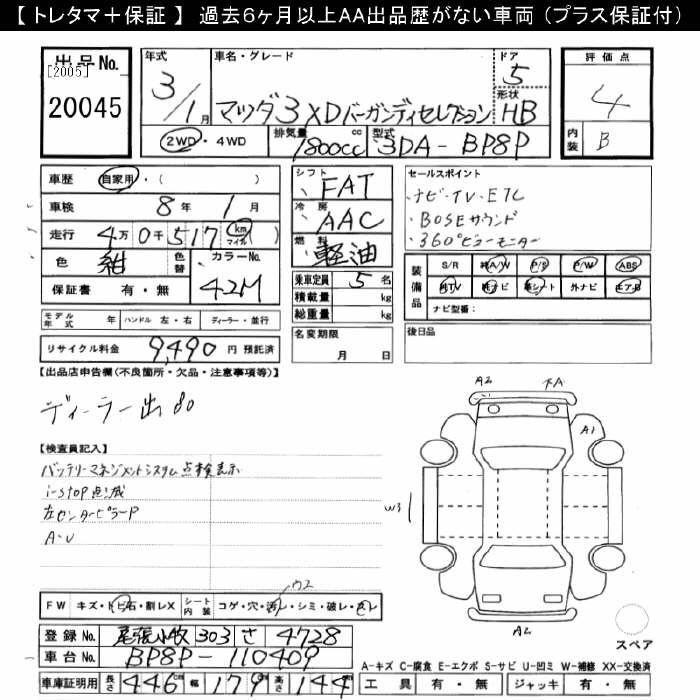 【 トレタマ＋保証 】 過去6ヶ月以上AA出品歴がない車両 （プラス保証付）
出品No. [2005] 20045
年式 3/1月
車名・グレード マツダ3 XDバーガンディセレクション
ドア 5
形状 HB
2WD・4WD 排気量 1800cc cc 型式 3DA-BP8P
評価点 4
内装 B
車歴 自家用・( )
車検 8年 1月
走行 4万0千517 km マイル
色 紺 色替 カラーNo. 42M
保証書 有・無
シフト FAT
冷房 AAC
燃料 軽油
乗車定員 5 名
積載量 kg
総重量 kg
セールスポイント
ナビ・TV・ETC
・BOSEサウンド
・360°ビューモニター
装備品 S/R 純A/W P/S P/W ABS
純TV 純ナビ 革シート 外ナビ エアB
ナビ型番：
モデル年式 年 ハンドル 左・右 ディーラー・並行
リサイクル料金 9,490 円 預託済
名変期限 月 日
後日品
【出品店申告欄(不良箇所・欠品・注意事項等)】
ディーラー出品
【検査員記入】
バッテリーマネジメントシステム点検表示
i-stop点滅
左センターピラーP
A・U
A2
A1
W3
A2
スペア
W2
FW キズ・トビ石・割レX シート内装 コゲ・穴・汚レ・シミ・破レ・スレ
登録No. 尾張小牧 303 さ 4728
車台No. BP8P-110409
車庫証明用 長さ 446 幅 179 高さ 144
A-キズ C-腐食 E-エクボ S-サビ U-凹ミ W-補修 XX-交換済
工具 有・無 ジャッキ 有・無